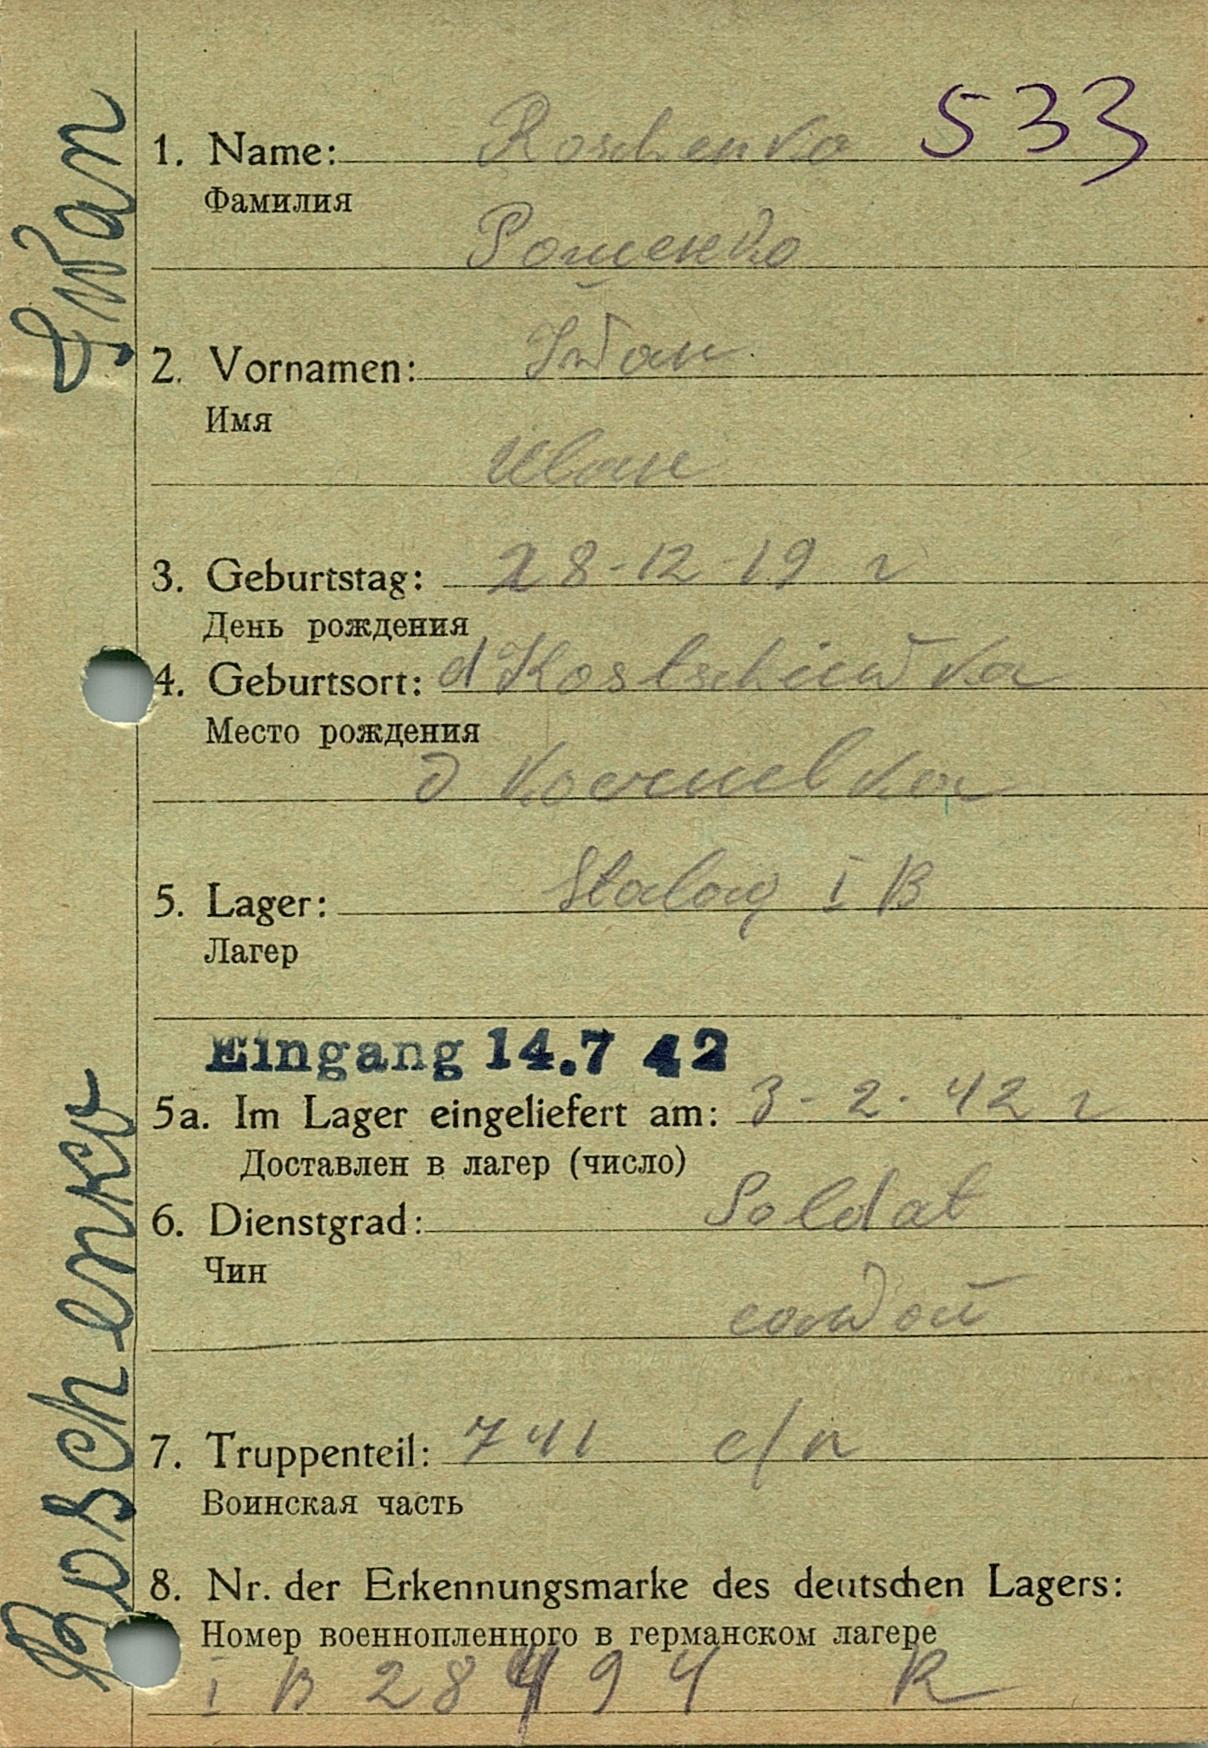 533
1. Name: Roschenko
Фамилия
Рошенко
2. Vornamen: Iwan
Имя
Иван
3. Geburtstag: 28-12-19 г
День рождения
4. Geburtsort: d
Место рождения
д
5. Lager: Stalag I B
Лагер
Eingang 14.7 42
5a. Im Lager eingeliefert am: 3-2-42 г
Доставлен в лагер (число)
6. Dienstgrad: Soldat
Чин
7. Truppenteil: 741 с/п
Воинская часть
8. Nr. der Erkennungsmarke des deutschen Lagers:
Номер военнопленного в германском лагере
I B 28494 R
Roschenko Iwan